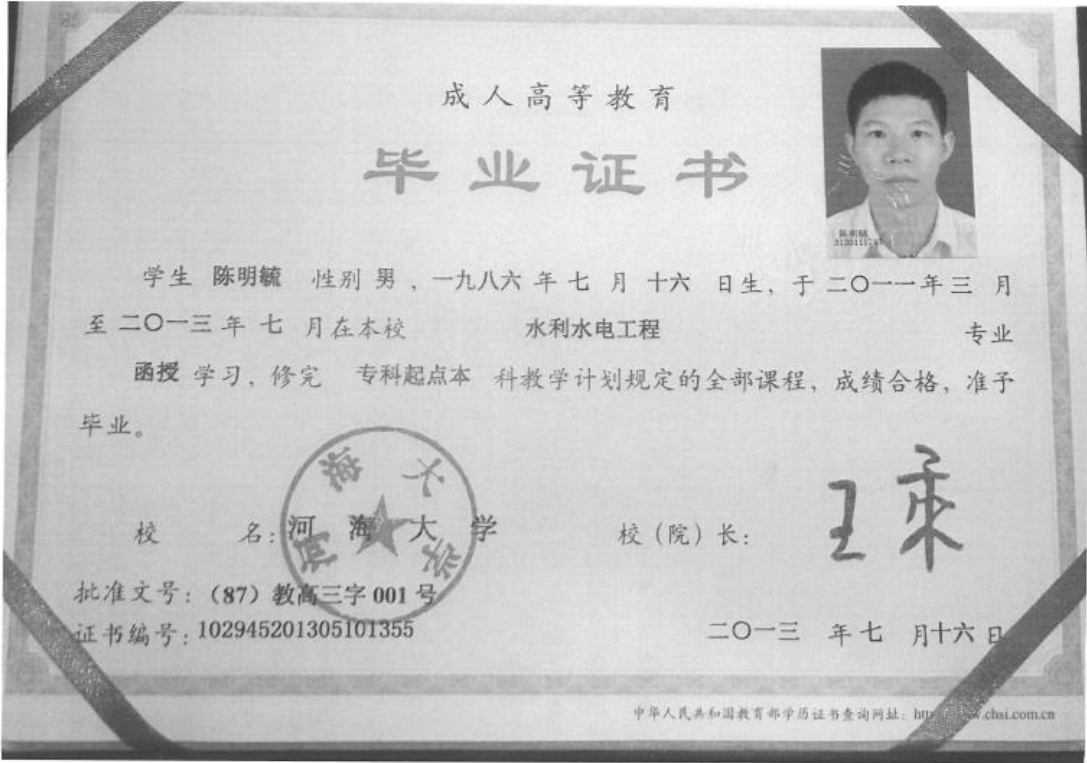 成人高等教育
毕业证书
陈明毓
学生 陈明毓 性别 男 ，一九八六 年 七 月 十六 日生，于 二〇一一 年 三 月
至 二〇一三 年 七 月在本校 水利水电工程 专业
函授 学习，修完 专科起点本 科教学计划规定的全部课程，成绩合格，准予
毕业。
河海大学
校 名：河 海 大 学 校（院）长：
批准文号：（87）教高三字 001 号
证书编号：102945201305101355 二〇一三 年 七 月十六 日
中华人民共和国教育部学历证书查询网址： .chsi.com.cn